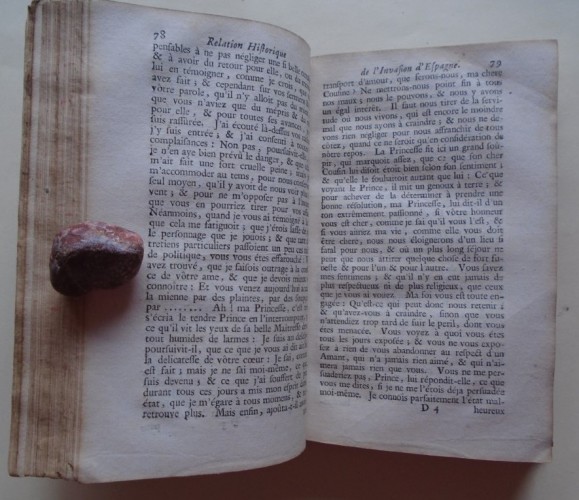 78 Relation Historique
pensables à ne pas négliger une si belle
& à avoir du retour pour elle, ou du
lui en témoigner, comme je crois, que
avez fait; & cependant sur vos sermens
vôtre parole, qu'il n'y alloit pas de
que vous n'aviez que du mépris &
pour elle, & pour toutes ses avances,
suis rassurée. J'ai écouté là-dessus vos
j'y suis entrée; & j'ai consenti à
complaisances: Non pas, poursuivit-elle,
je n'en aye bien prévû le danger, & que
m'ait fait une fort cruelle peine;
m'accommoder au tems, pour nous
seul moyen, qu'il y avoit de nous voir
vent; & pour ne m'opposer pas à
que vous en pourriez tirer pour vos
Néanmoins, quand je vous ai témoigné
que cela me fatiguoit; que j'étois lasse
le personnage que je jouois; & que
tretiens particuliers passoient un peu
de politique, vous vous êtes effarouché:
avez trouvé, que je faisois outrage à la
ce de vôtre ame, & que je devois mieux
connoître: Et vous venez aujourd'hui
la mienne par des plaintes, par des
par ........ Ah! ma Princesse,
s'écria le tendre Prince en l'interrompant,
ce qu'il vit les yeux de sa belle Maîtresse
tout humides de larmes: Je suis au
poursuivit-il, que ce que je vous ai dit
la délicatesse de vôtre cœur: Je sai,
est fait; mais je ne sai moi-même, ce
suis devenu; & ce que j'ai souffert de
durant tous ces jours a mis mon esprit
état, que je m'égare à tous momens, &
retrouve plus. Mais enfin, ajoûta-t-il
de l'Invasion d'Espagne. 79
transport d'amour, que ferons-nous, ma chere
Cousine? Ne mettrons-nous point fin à tous
nos maux; nous le pouvons, & nous y avons
un égal intérêt. Il faut nous tirer de la servi-
tude où nous vivons, qui est encore le moindre
mal que nous ayons à craindre; & nous ne de-
vons rien négliger pour nous affranchir de tous
côtez, quand ce ne seroit qu'en considération de
nôtre repos. La Princesse fit ici un grand soû-
pir, qui marquoit assez, que ce que son cher
Cousin lui disoit étoit bien selon son sentiment;
& qu'elle le souhaitoit autant que lui: Ce que
voyant le Prince, il mit un genoux à terre; &
pour achever de la déterminer à prendre une
bonne résolution, ma Princesse, lui dit-il d'un
ton extrêmement passionné, si vôtre honneur
vous est cher, comme je sai qu'il vous l'est, &
si vous aimez ma vie, comme elle vous doit
être chere, nous nous éloignerons d'un lieu si
fatal pour nous, & où un plus long séjour ne
peut que nous attirer quelque chose de fort fu-
neste & pour l'un & pour l'autre. Vous savez
mes sentimens; & qu'il n'y en eut jamais de
plus respectueux ni de plus religieux, que ceux
que je vous ai vouez. Ma foi vous est toute en-
gagée: Qu'est-ce qui peut donc nous retenir;
& qu'avez-vous à craindre, sinon que vous
n'attendiez trop tard de fuir le peril, dont vous
êtes menacée. Vous voyez à quoi vous êtes
tous les jours exposée; & vous ne vous expo-
sez à rien de vous abandonner au respect d'un
Amant, qui n'a jamais rien aimé, & qui n'ai-
mera jamais rien que vous. Vous ne me per-
suaderiez pas, Prince, lui répondit-elle, ce que
vous me dites, si je ne me l'étois déja persuadée
moi-même. Je connois parfaitement l'état mal-
D 4 heureux